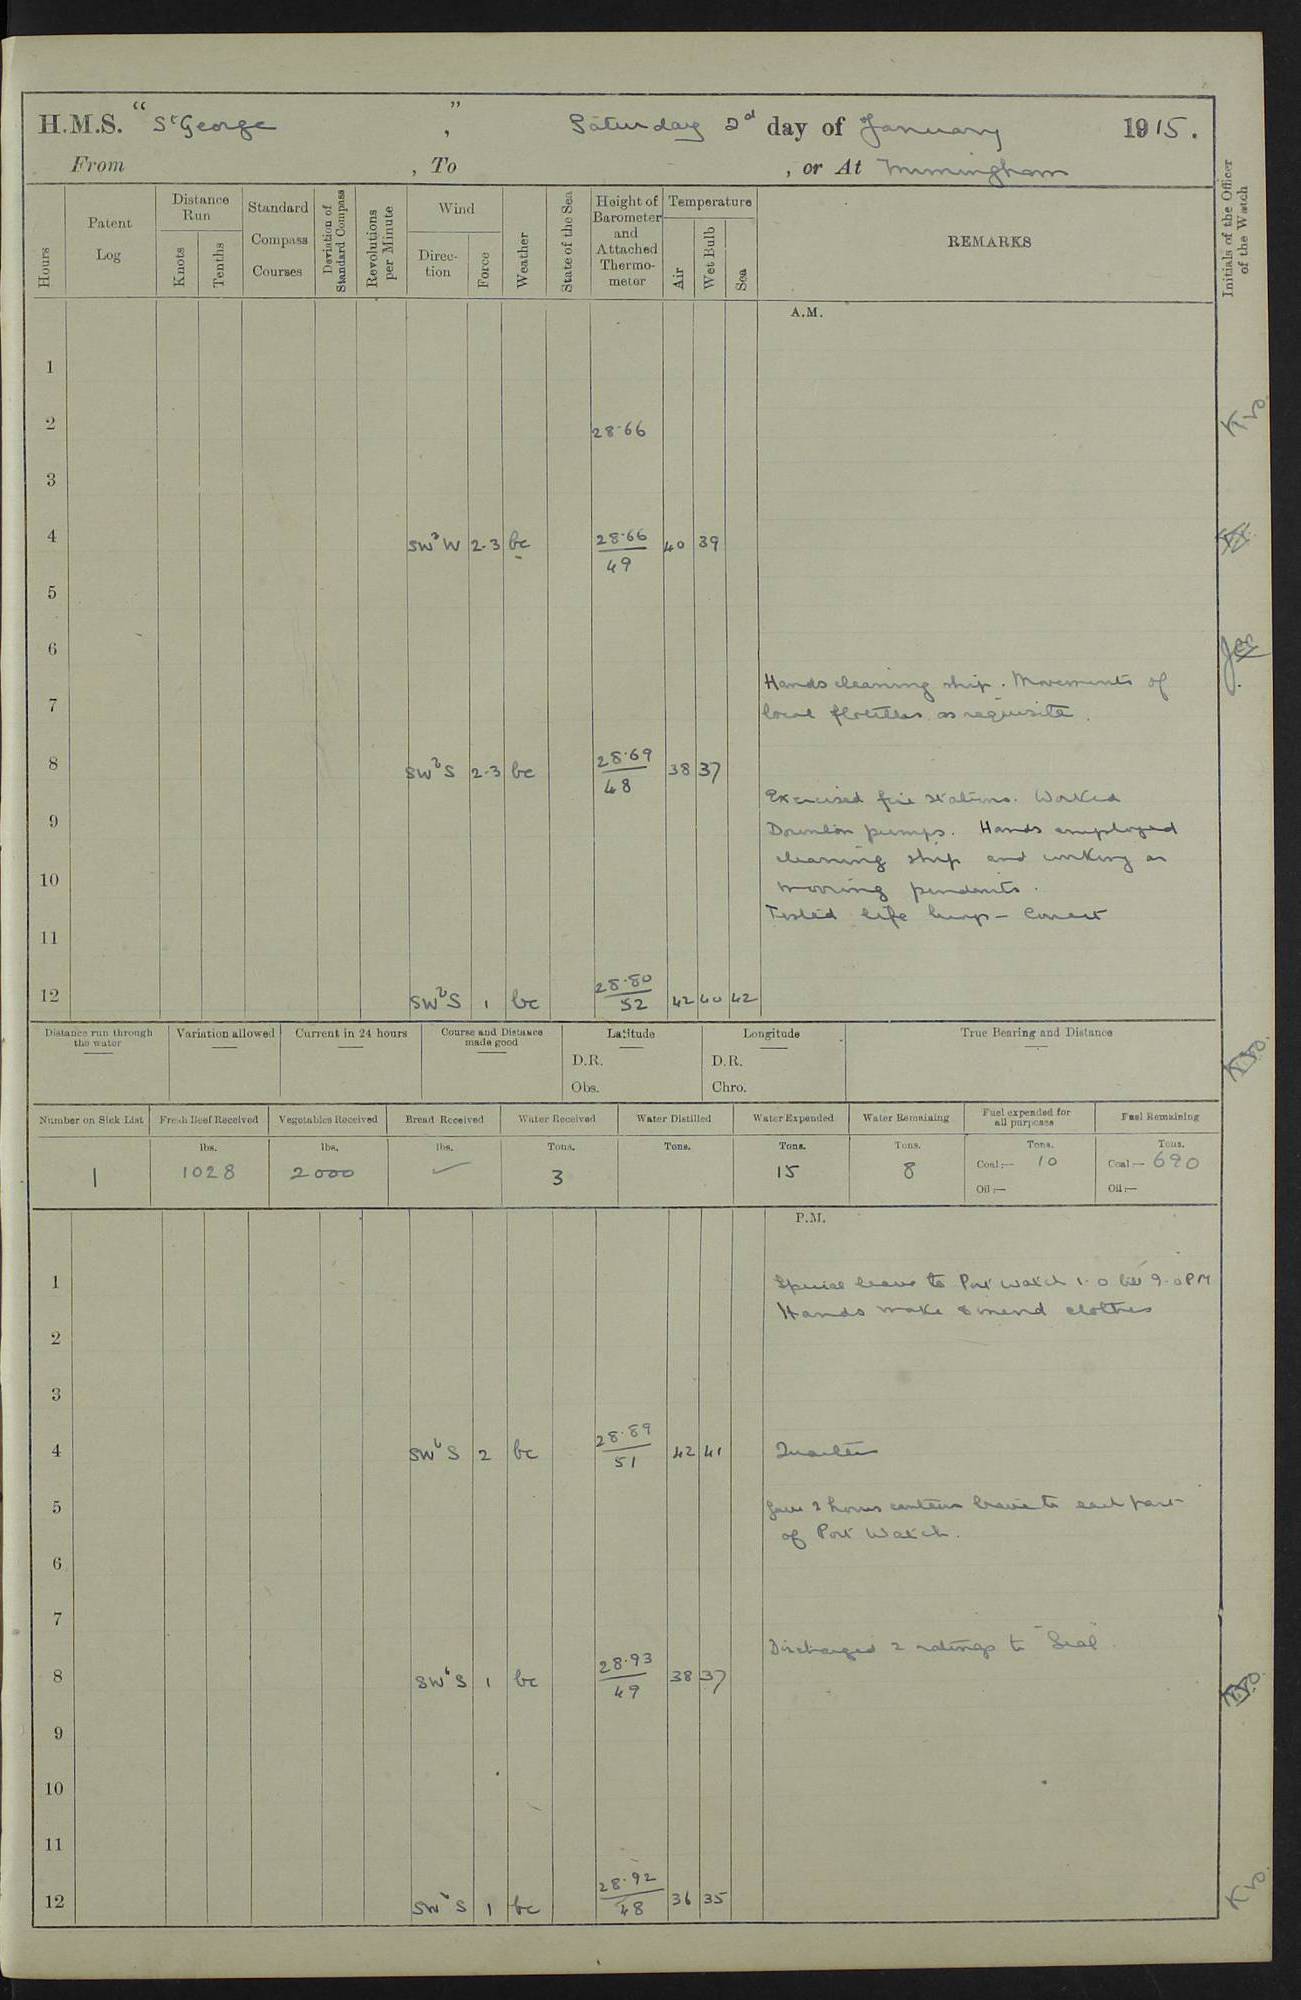 H.M.S. "St George", Saturday 2d day of January 1915.
From , To , or At Immingham
Hours
Patent Log
Distance Run
Knots
Tenths
Standard Compass Courses
Deviation of Standard Compass
Revolutions per Minute
Wind
Direction
Force
Weather
State of the Sea
Height of Barometer and Attached Thermometer
Temperature
Air
Wet Bulb
Sea
REMARKS
Initials of the Officer of the Watch
A.M.
1
2 28.66
3
4 SWbW 2-3 bc 28.66 49 40 39
5
6
Hands cleaning ship. Movements of
7
local flotillas as requisite.
8 SWbS 2-3 bc 28.69 48 38 37
Exercised fire stations. Worked
9
Downton pumps. Hands employed
cleaning ship and working on
10
mooring pendants.
Tested life buoys - Correct
11
12 SWbS 1 bc 28.80 52 42 40 42
Distance run through the water
Variation allowed
Current in 24 hours
Course and Distance made good
Latitude
D.R.
Obs.
Longitude
D.R.
Chro.
True Bearing and Distance
Number on Sick List
Fresh Beef Received
Vegetables Received
Bread Received
Water Received
Water Distilled
Water Expended
Water Remaining
Fuel expended for all purposes
Fuel Remaining
lbs. lbs. lbs. Tons. Tons. Tons. Tons. Tons. Tons.
1 1028 2000 3 15 8 Coal:— 10 Coal:— 690
Oil:— Oil:—
P.M.
1 Special leave to Port Watch 1.0 till 9.0 PM
Hands make & mend clothes
2
3
4 SWbS 2 bc 28.89 51 42 41 Quarters
5 Gave 2 hours canteen leave to each part
of Port Watch.
6
7
Discharged 2 ratings to "Seal"
8 SWbS 1 bc 28.93 49 38 37
9
10
11
12 SWbS 1 bc 28.92 48 36 35